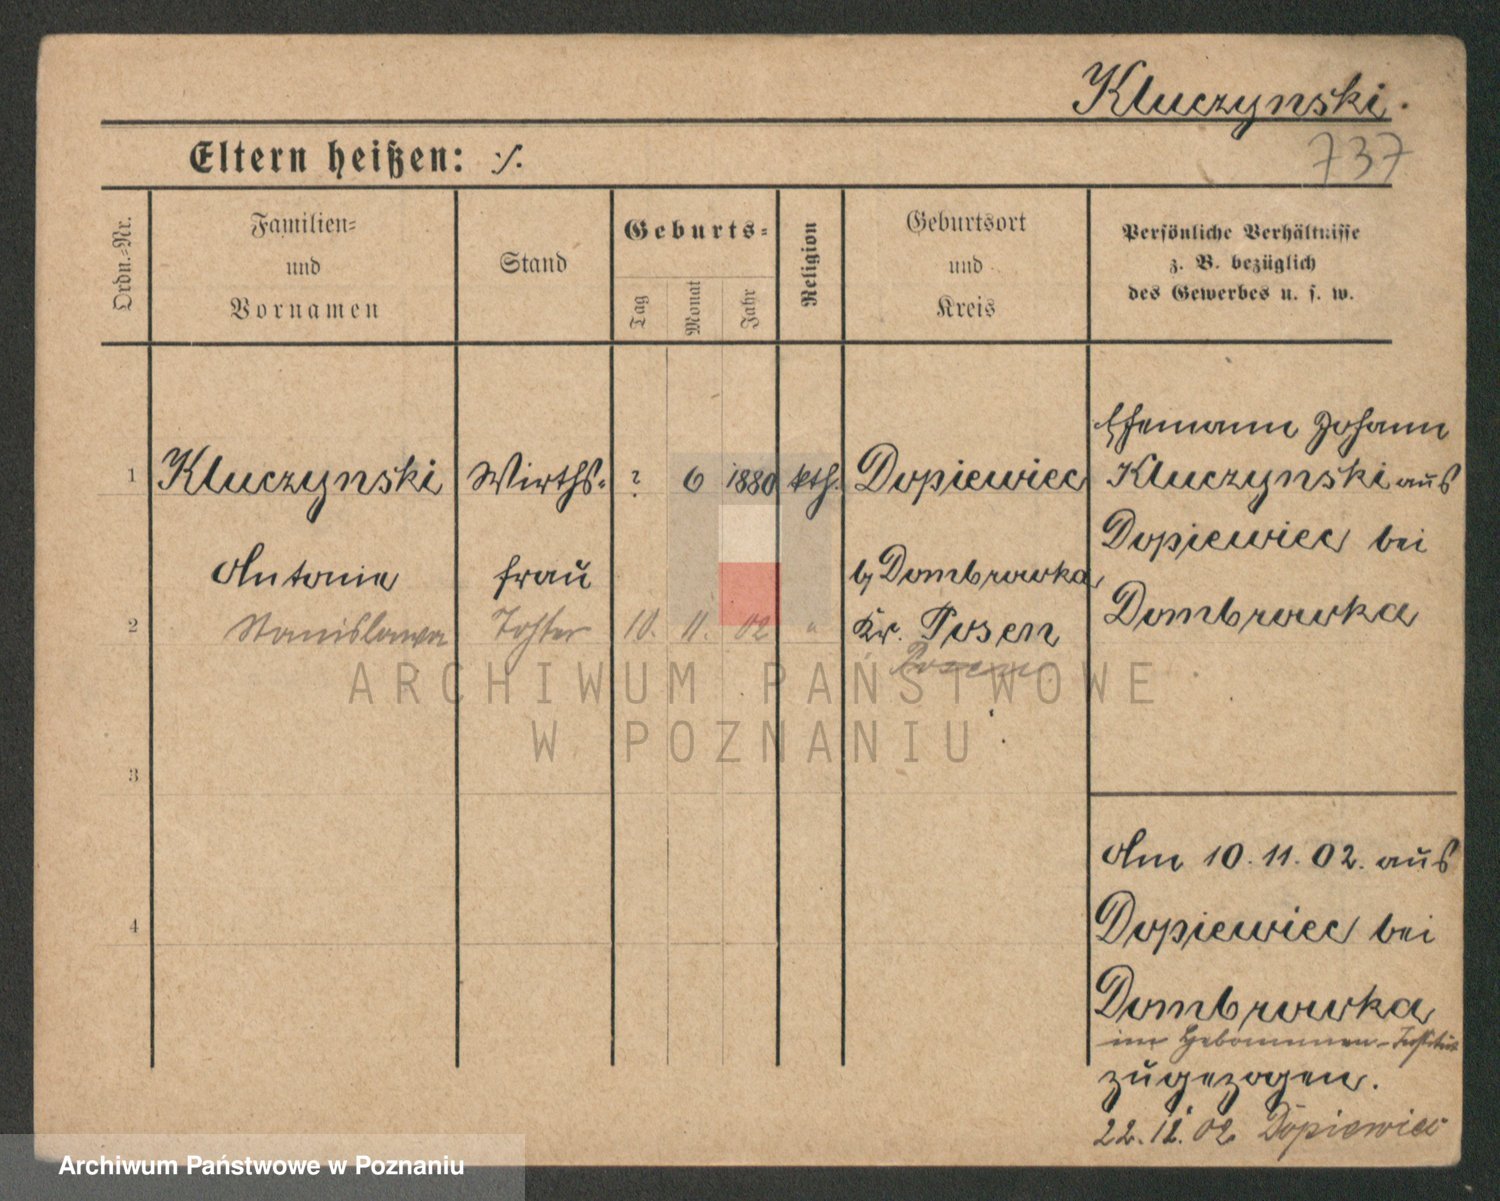 Kluczynski.
737
Eltern heißen: ./.
Ordn.-Nr.
Familien-
und
Vornamen
Stand
Geburts-
Tag
Monat
Jahr
Religion
Geburtsort
und
Kreis
Persönliche Verhältnisse
z. B. bezüglich
des Gewerbes u. s. w.
Ehemann Johann
1 Kluczynski Wirths- ? 6 1880 kth. Dopiewiec
Kluczynski aus
Dopiewiec bei
Antonie frau b/ Dombrowka
Dombrowka
2 Stanislawa Tochter 10. 11. 02 " Kr. Posen
Posen
ARCHIWUM PAŃSTWOWE
W POZNANIU
3
Am 10.11.02. aus
4
Dopiewiec bei
Dombrowka
im Hebammen-Institut
zugezogen.
22.12.02 Dopiewiec
Archiwum Państwowe w Poznaniu